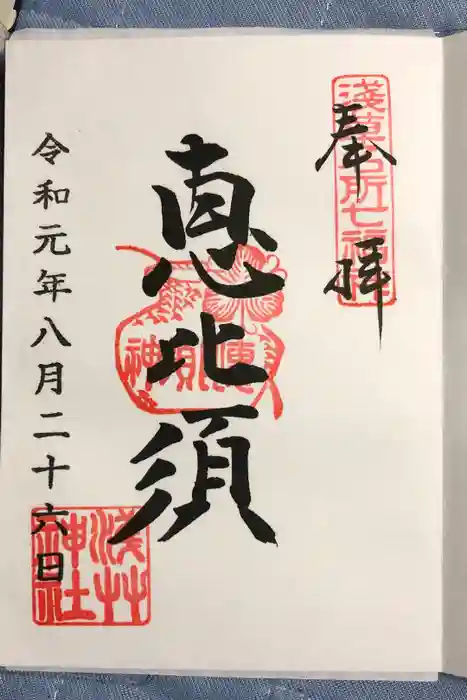 奉拝
淺草名所七福神
恵比須
令和元年八月二十六日
淺草神社